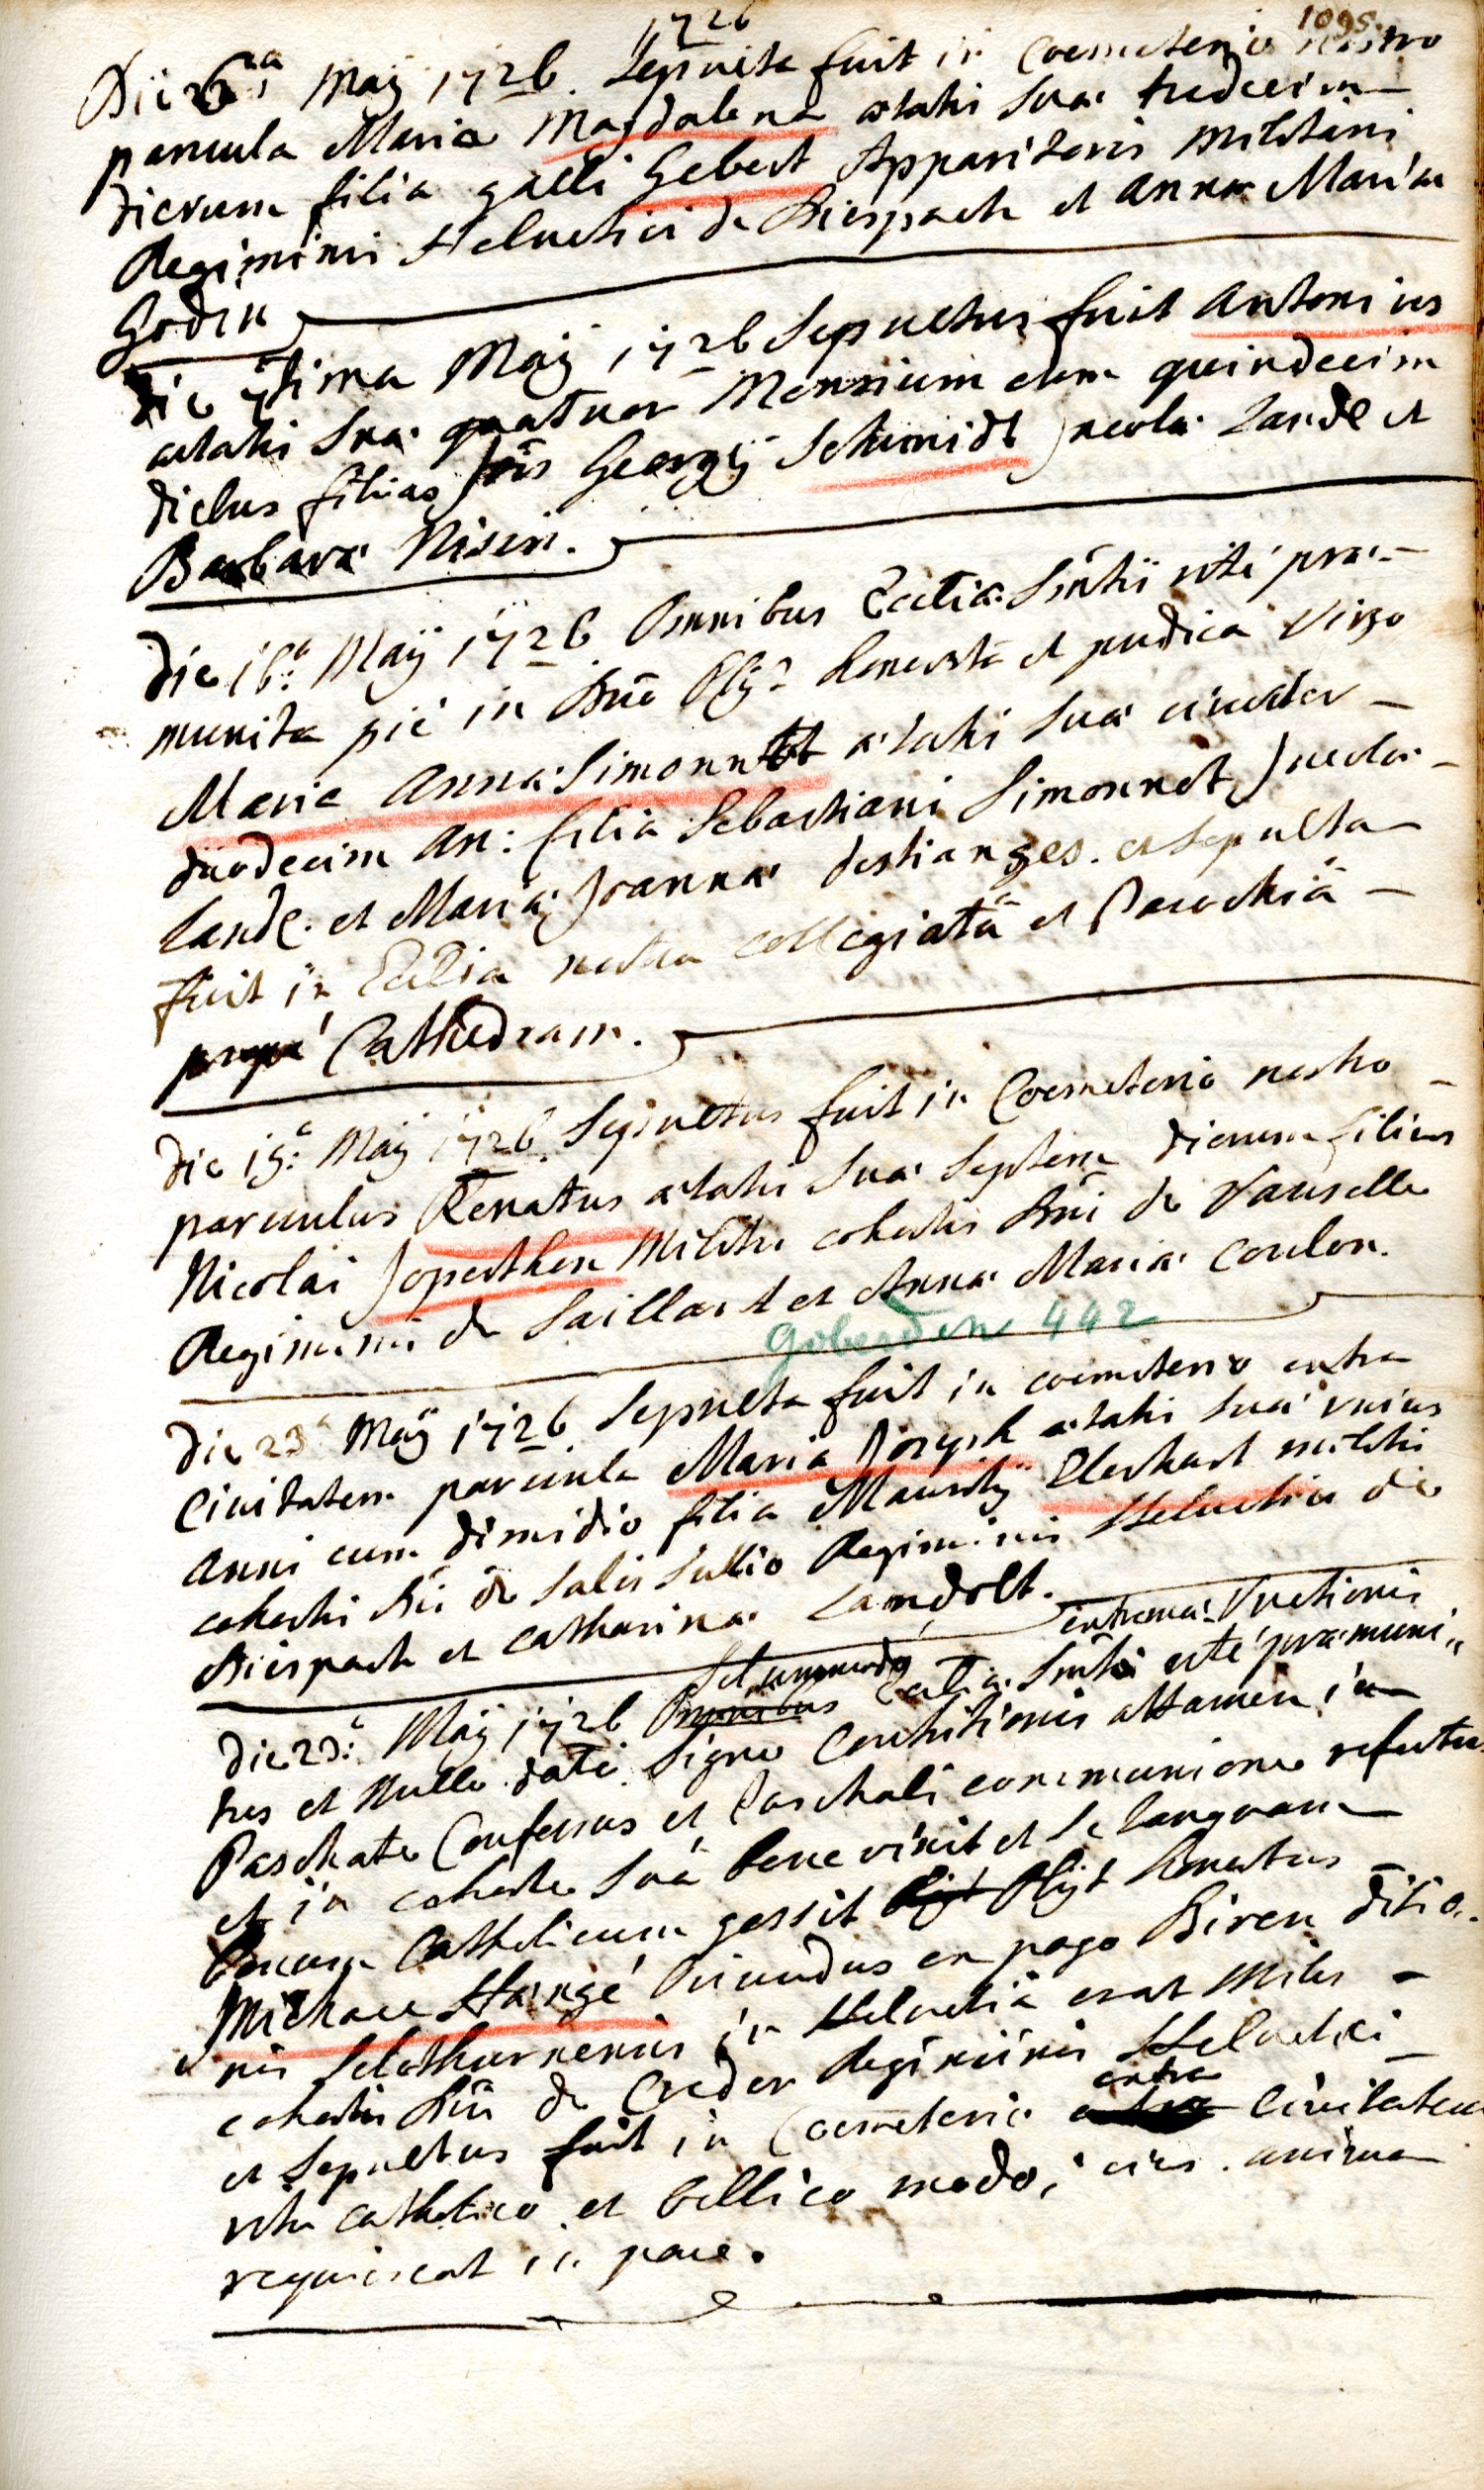 1726
1095.
Die 6ta Maÿ 1726. Sepulta fuit in Coemeterio nostro
parvula Maria Magdalena ætatis suæ tredecim
dierum filia galli Gebert Apparitoris militaris
Regiminis Helvetici de Diespach et Annæ Mariæ
Godin
Die 7tima Maÿ 1726 Sepultus fuit Antonius
ætatis suæ quatuor Mensium cum quindecim
diebus filius Jois Georgÿ Schmidt Jncolæ Land. et
Barbaræ Nisin.
Die 16a Maÿ 1726 Omnibus Eccliæ Sm̃tis rité præ-
munita pié in Dn̄o Obÿt honesta et pudica Virgo
Maria Anna Simonnet ætatis suæ circiter
duodecim an: filia Sebastiani Simonnet Jncolæ
Land. et Mariæ Joannæ destianges. et sepulta
fuit in Ecclia nostra collegiatâ et Parochiâ
propé Cathedram.
Die 19a Maÿ 1726 Sepultus fuit in Coemeterio nostro
parvulus Renatus ætatis suæ septem dierum filius
Nicolai Joperthen Militis cohortis Dn̄i de Vauselle
Regiminis de Saillant et Annæ Mariæ Coulon.
Goberden 442
Die 23a Maÿ 1726 Sepulta fuit in coemeterio extra
Civitatem parvula Maria Joseph ætatis suæ unius
anni cum dimidio filia Mauritÿ Elerhart militis
cohortis Dn̄i de Salis Sullio Regiminis Helvetici de
Diespach et Catharinæ Landolt.
extremæ Unctionis
Solummodo
Die 23a Maÿ 1726 Omnibus Eccliæ Sm̃to rité præmuni-
tus et Nullo dato Signo Contritionis attamen in
Paschate Confessus et Paschali communione refectus
et in cohorte suâ bene vixit et se tanquam
bonum Catholicum gessit Obÿt Obÿt honestus
Michael Hangé Oriundus ex pago Biren ditio-
nis Solothurnensis in Helvetiâ erat Miles
cohortis Dn̄i de Creder Regiminis Helvetici
et Sepultus fuit in Coemeterio extra Civitatem
ritu catholico et bellico modo, eius anima
requiescat in pace.